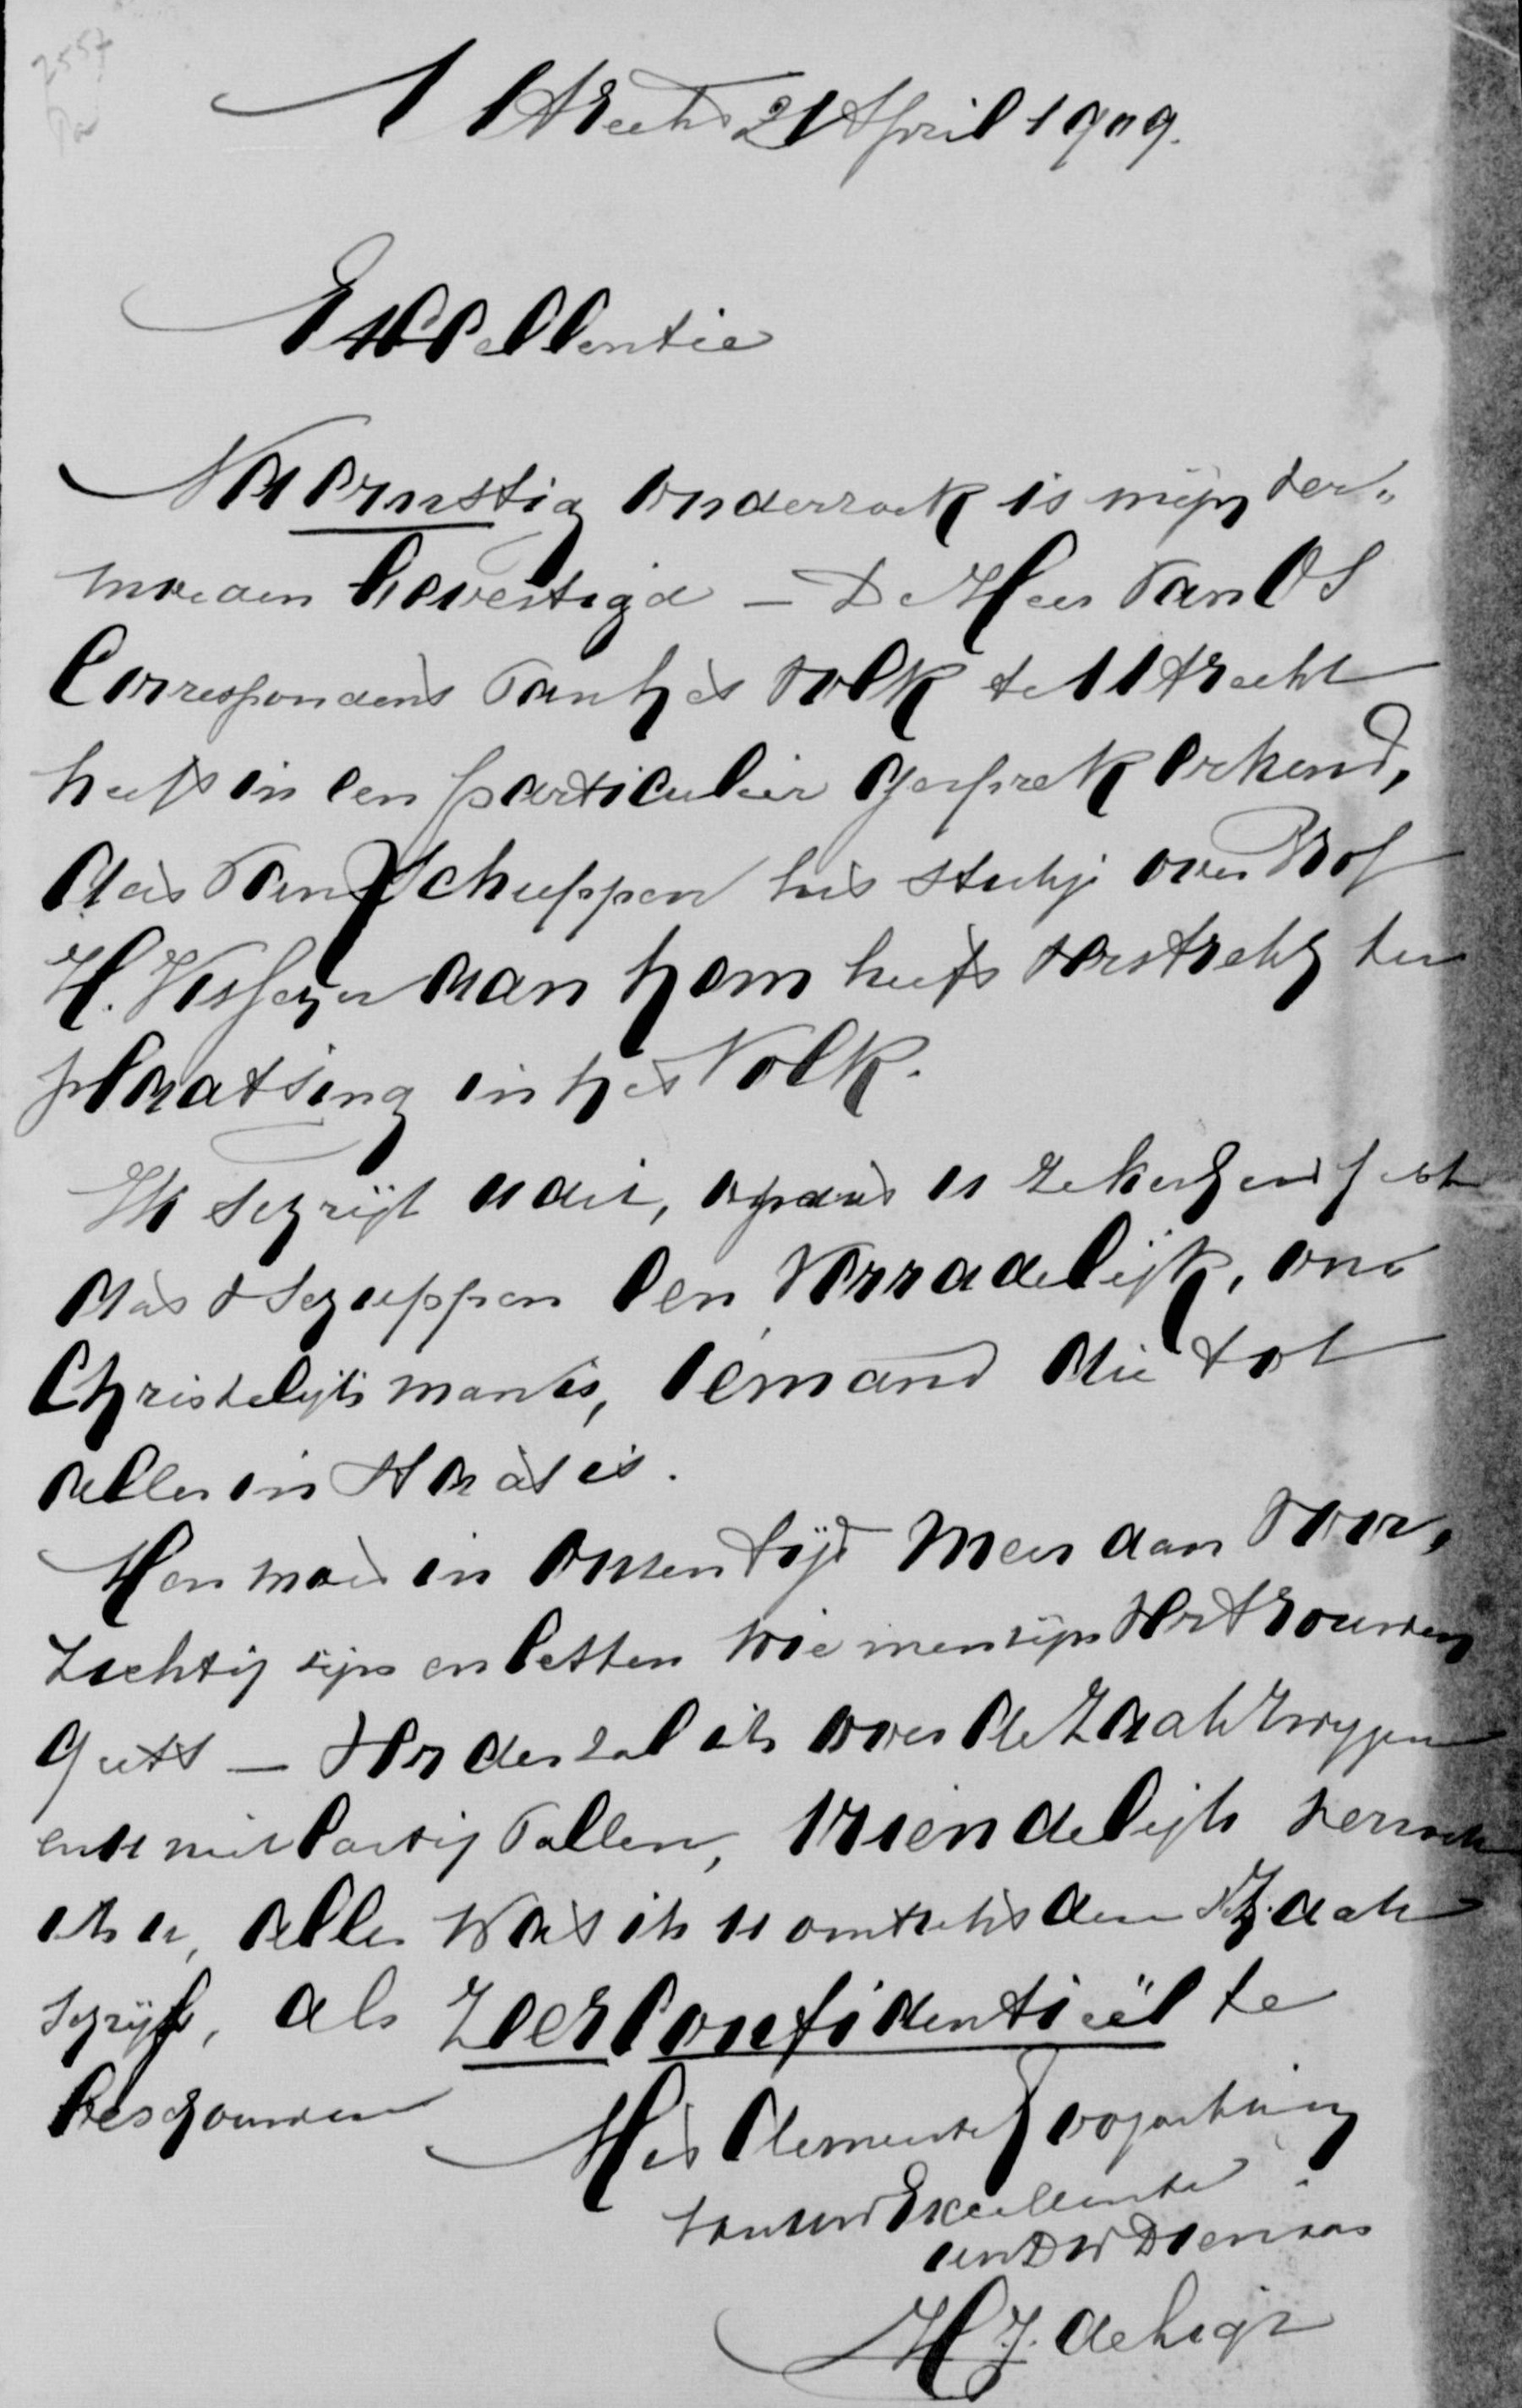 2557
Utrecht 21 April 1909.
Excellentie
Na ernstig onderzoek is mijn ver„
moeden bevestigd – De Heer van Os
Correspondent van het volk te Utrecht
heeft in een particulier gesprek erkend,
dat van Schuppen het stukje over Prof
H. Visscher aan hem heeft verstrekt ter
plaatsing in het Volk.
Ik schrijf u dit, opdat u zeker zij
dat v Schuppen een verradelijk, on„
Christelijk man is, iemand die tot
alles in staat is.
Men moet in onzen tijd meer dan voor„
zichtig zijn en letten wie men zijn vertrouwen
geeft – Verder zal ik over de zaak zwijgen
en u niet lastig vallen, vriendelijk verzoek
ik u, alles wat ik u omtrent deze zaak
schrijf, als zeer confidentiëel te
beschouwen
Met de meeste Hoogachting
van uw Excellentie
een Dw Dienaar
H. J. de